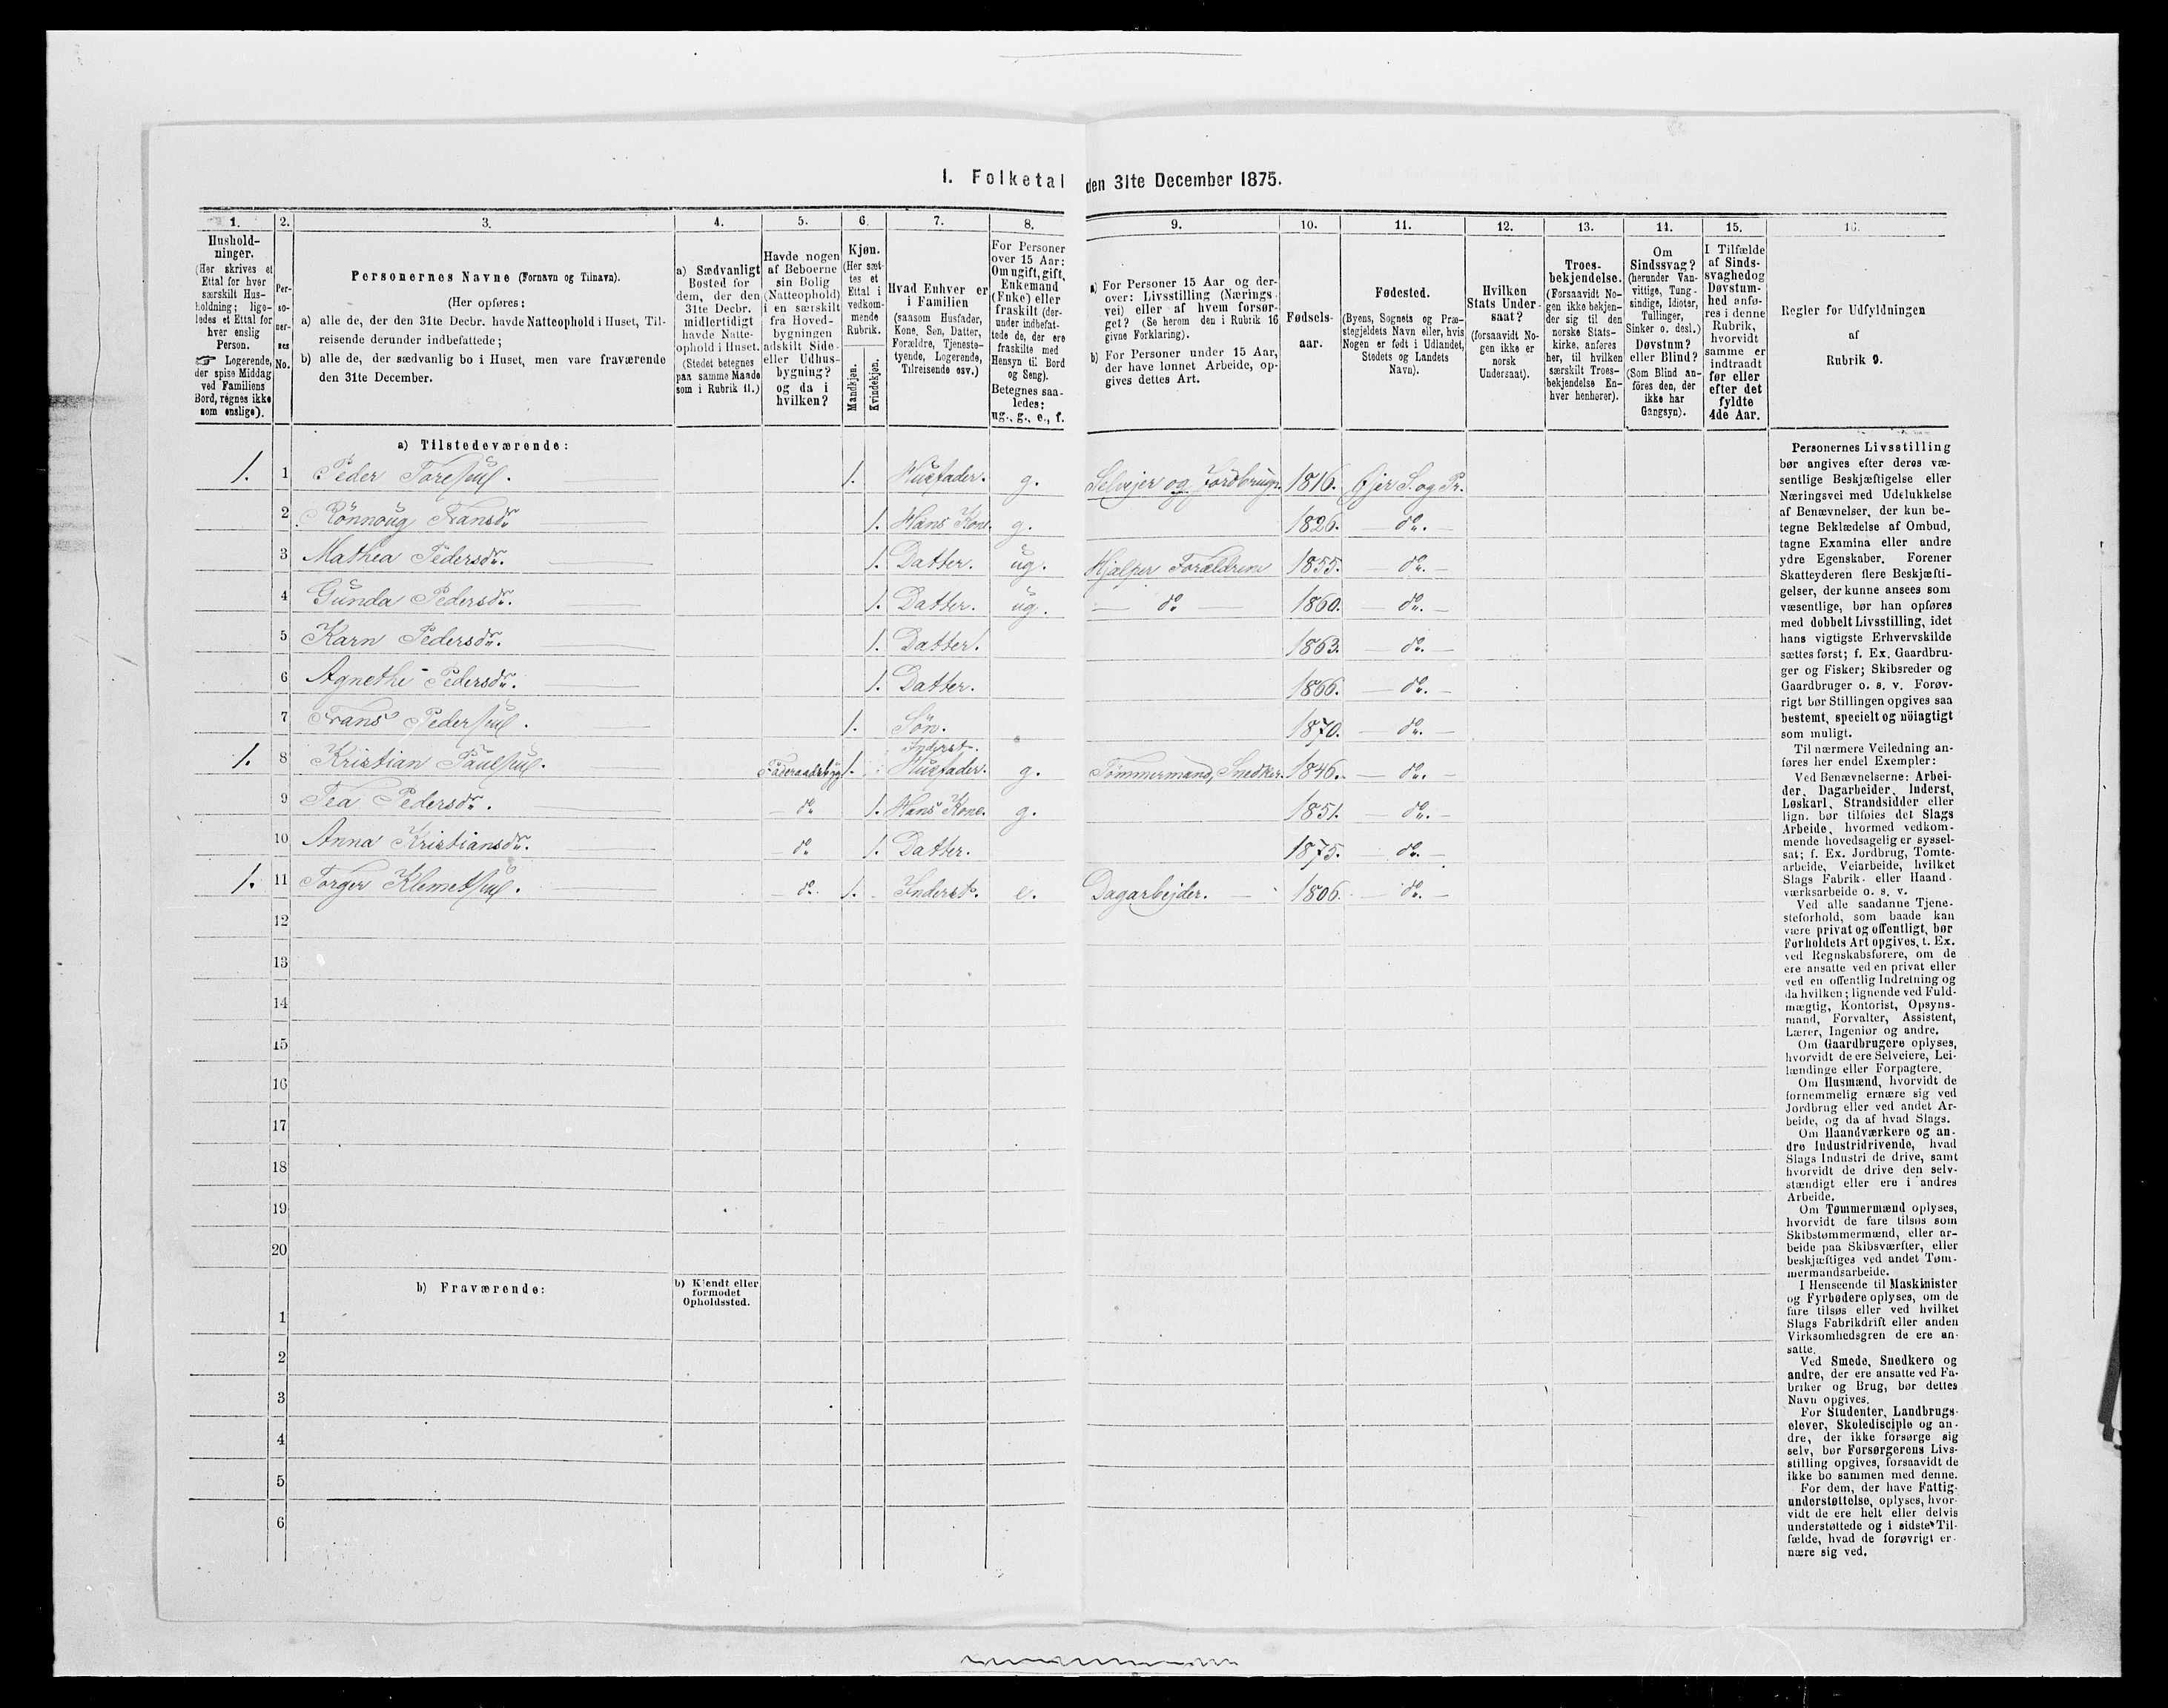 1. Folketal den 31te December 1875.
1.
Hushold-
ninger.
(Her skrives et
Ettal for hver
særskilt Hus-
holdning; lige-
ledes et Ettal for
hver enslig
Person.
☞ Logerende,
der spise Middag
ved Familiens
Bord, regnes ikke
som enslige).
2.
Per-
so-
ner-
nes
No.
3.
Personernes Navne (Fornavn og Tilnavn).
(Her opføres:
a) alle de, der den 31te Decbr. havde Natteophold i Huset, Til-
reisende derunder indbefattede;
b) alle de, der sædvanlig bo i Huset, men vare fraværende
den 31te December.
4.
a) Sædvanligt
Bosted for
dem, der den
31te Decbr.
midlertidigt
havde Natte-
ophold i Huset.
(Stedet betegnes
paa samme Maade
som i Rubrik 11.)
5.
Havde nogen
af Beboerne
sin Bolig
(Natteophold)
i en særskilt
fra Hoved-
bygningen
adskilt Side-
eller Udhus-
bygning?
og da i
hvilken?
6.
Kjøn.
(Her sæt-
tes et
Ettal i
vedkom-
mende
Rubrik.
Mandkjøn.
Kvindekjøn.
7.
Hvad Enhver er
i Familien
(saasom Husfader,
Kone, Søn, Datter,
Forældre, Tjeneste-
tyende, Logerende,
Tilreisende osv.)
8.
For Personer
over 15 Aar:
Om ugift, gift,
Enkemand
(Enke) eller
fraskilt (der-
under indbefat-
tede de, der ere
fraskilte med
Hensyn til Bord
og Seng).
Betegnes saa-
ledes:
ug., g., e., f.
9.
a) For Personer 15 Aar og der-
over: Livsstilling (Nærings-
vei) eller af hvem forsør-
get? (Se herom den i Rubrik 16
givne Forklaring).
b) For Personer under 15 Aar,
der have lønnet Arbeide, op-
gives dettes Art.
10.
Fødsels-
aar.
11.
Fødested.
(Byens, Sognets og Præ-
stegjeldets Navn eller, hvis
Nogen er født i Udlandet,
Stedets og Landets
Navn).
12.
Hvilken
Stats Under-
saat?
(forsaavidt No-
gen ikke er
norsk
Undersaat).
13.
Troes-
bekjendelse.
(Forsaavidt No-
gen ikke bekjen-
der sig til den
norske Stats-
kirke, anføres
her, til hvilken
særskilt Troes-
bekjendelse En-
hver henhører).
14.
Om
Sindssvag?
(herunder Van-
vittige, Tung-
sindige, Idioter,
Tullinger,
Sinker o. desl.)
Døvstum?
eller Blind?
(Som Blind an-
føres den, der
ikke har
Gangsyn).
15.
I Tilfælde
af Sinds-
svaghed og
Døvstum-
hed anfø-
res i denne
Rubrik,
hvorvidt
samme er
indtraadt
før eller
efter det
fyldte
4de Aar.
16.
Regler for Udfyldningen
af
Rubrik 9.
a) Tilstedeværende:
1. 1 Peder 1. Husfader. g. Selvejer og 1816. Øjer S. og Pr.
2 Rönnoug Fransdr. 1. Hans Kone. g. 1826. do.
3 Mathea Pedersdr. 1. Datter. ug. Hjælper Forældrene 1855. do.
4 Gunda Pedersdr. 1. Datter. ug. do 1860. do.
5 Karn Pedersdr. 1. Datter. 1863. do.
6 Agnethe Pedersdr. 1. Datter. 1866. do.
7 Frans Pedersen. 1. Søn. 1870. do.
Inderst.
1. 8 Kristian Paulsen. 1. Husfader. g. Tømmermand, Snedker. 1846. do.
9 Tea Pedersdr. do 1. Hans Kone. g. 1851. do.
10 Anna Kristiansdr. do 1. Datter. 1875. do.
1. 11 Torger Klemetsen. do. 1. Inderst. e. Dagarbejder. 1806. do.
12
13
14
15
16
17
18
19
20
b) Fraværende:
b) Kjendt eller
formodet
Opholdssted.
1
2
3
4
5
6
Personernes Livsstilling
bør angives efter deres væ-
sentlige Beskjæftigelse eller
Næringsvei med Udelukkelse
af Benævnelser, der kun be-
tegne Beklædelse af Ombud,
tagne Examina eller andre
ydre Egenskaber. Forener
Skatteyderen flere Beskjæfti-
gelser, der kunne ansees som
væsentlige, bør han opføres
med dobbelt Livsstilling, idet
hans vigtigste Erhvervskilde
sættes først; f. Ex. Gaardbru-
ger og Fisker; Skibsreder og
Gaardbruger o. s. v. Forøv-
rigt bør Stillingen opgives saa
bestemt, specielt og nöiagtigt
som muligt.
Til nærmere Veiledning an-
føres her endel Exempler:
Ved Benævnelserne: Arbei-
der, Dagarbeider, Inderst,
Løskarl, Strandsidder eller
lign. bør tilføies det Slags
Arbeide, hvormed vedkom-
mende hovedsagelig er syssel-
sat; f. Ex. Jordbrug, Tomte-
arbeide, Veiarbeide, hvilket
Slags Fabrik- eller Haand-
værksarbeide o. s. v.
Ved alle saadanne Tjene-
steforhold, som baade kan
være privat og offentligt, bør
Forholdets Art opgives, t. Ex.
ved Regnskabsførere, om de
ere ansatte ved en privat eller
ved en offentlig Indretning og
da hvilken; lignende ved Fuld-
mægtig, Kontorist, Opsyns-
mand, Forvalter, Assistent,
Lærer, Ingeniør og andre.
Om Gaardbrugere oplyses,
hvorvidt de ere Selveiere, Lei-
lændinge eller Forpagtere.
Om Husmænd, hvorvidt de
fornemmelig ernære sig ved
Jordbrug eller ved andet Ar-
beide, og da af hvad Slags.
Om Haandværkere og an-
dre Industridrivende, hvad
Slags Industri de drive, samt
hvorvidt de drive den selv-
stændigt eller ere i andres
Arbeide.
Om Tømmermænd oplyses,
hvorvidt de fare tilsøs som
Skibstømmermænd, eller ar-
beide paa Skibsværfter, eller
beskjæftiges ved andet Tøm-
mermandsarbeide.
I Henseende til Maskinister
og Fyrbødere oplyses, om de
fare tilsøs eller ved hvilket
Slags Fabrikdrift eller anden
Virksomhedsgren de ere an-
satte.
Ved Smede, Snedkere og
andre, der ere ansatte ved Fa-
briker og Brug, bør dettes
Navn opgives.
For Studenter, Landbrugs-
elever, Skoledisciple og an-
dre, der ikke forsørge sig
selv, bør Forsørgerens Livs-
stilling opgives, forsaavidt de
ikke bo sammen med denne.
For dem, der have Fattig-
understøttelse, oplyses, hvor-
vidt de ere helt eller delvis
understøttede og i sidste Til-
fælde, hvad de forøvrigt er-
nære sig ved.